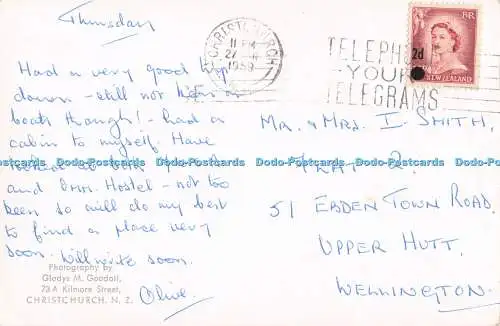 Thursday
Had a very good trip
down - still not keen on
boats though! - had a
cabin to myself. Have
looked at our
and Hostel - not too
keen so will do my best
to find a place very
soon. Will write soon.
Olive.
Photography by
Gladys M. Goodall,
73A Kilmore Street,
CHRISTCHURCH, N. Z.
CHRISTCHURCH
11 PM
27
1959
TELEPHONE
YOUR
TELEGRAMS
2d
NEW ZEALAND
MR. & MRS. I. SMITH,
FLAT 2.
51 EBDEN TOWN ROAD.
UPPER HUTT,
WELLINGTON.
Dodo-Postcards Dodo-Postcards Dodo-Postcards Dodo-Postcards Dodo-Postcards